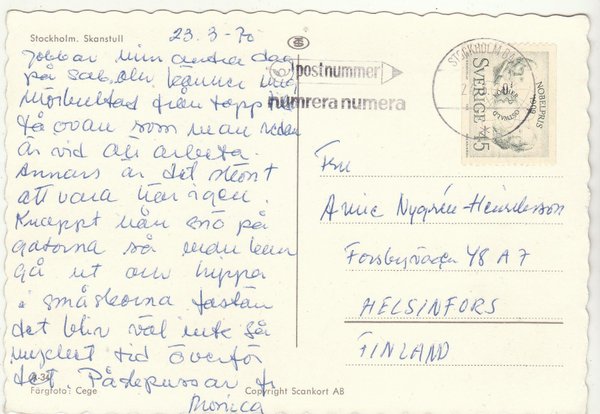 Stockholm. Skanstull
23.3-70
Jobbar min andra dag
på Sab. känner mig
mörbultad från topp till
tå ovan som man redan
är vid att arbeta.
Annars är det skönt
att vara här igen.
Knappt nån snö på
gatorna så man kan
gå ut och hippa
i småskorna fastän
det blir väl inte så
mycket tid över för
det. Påskpussar fr
Monica
postnummer
numrera numera
STOCKHOLM BAN
NOBELPRIS
1909
OSTWALD
SVERIGE 45
Fru
Annie Nygrén-Henriksson
Forsbyvägen 48 A 7
HELSINFORS
FINLAND
Färgfoto: Cege
Copyright Scankort AB